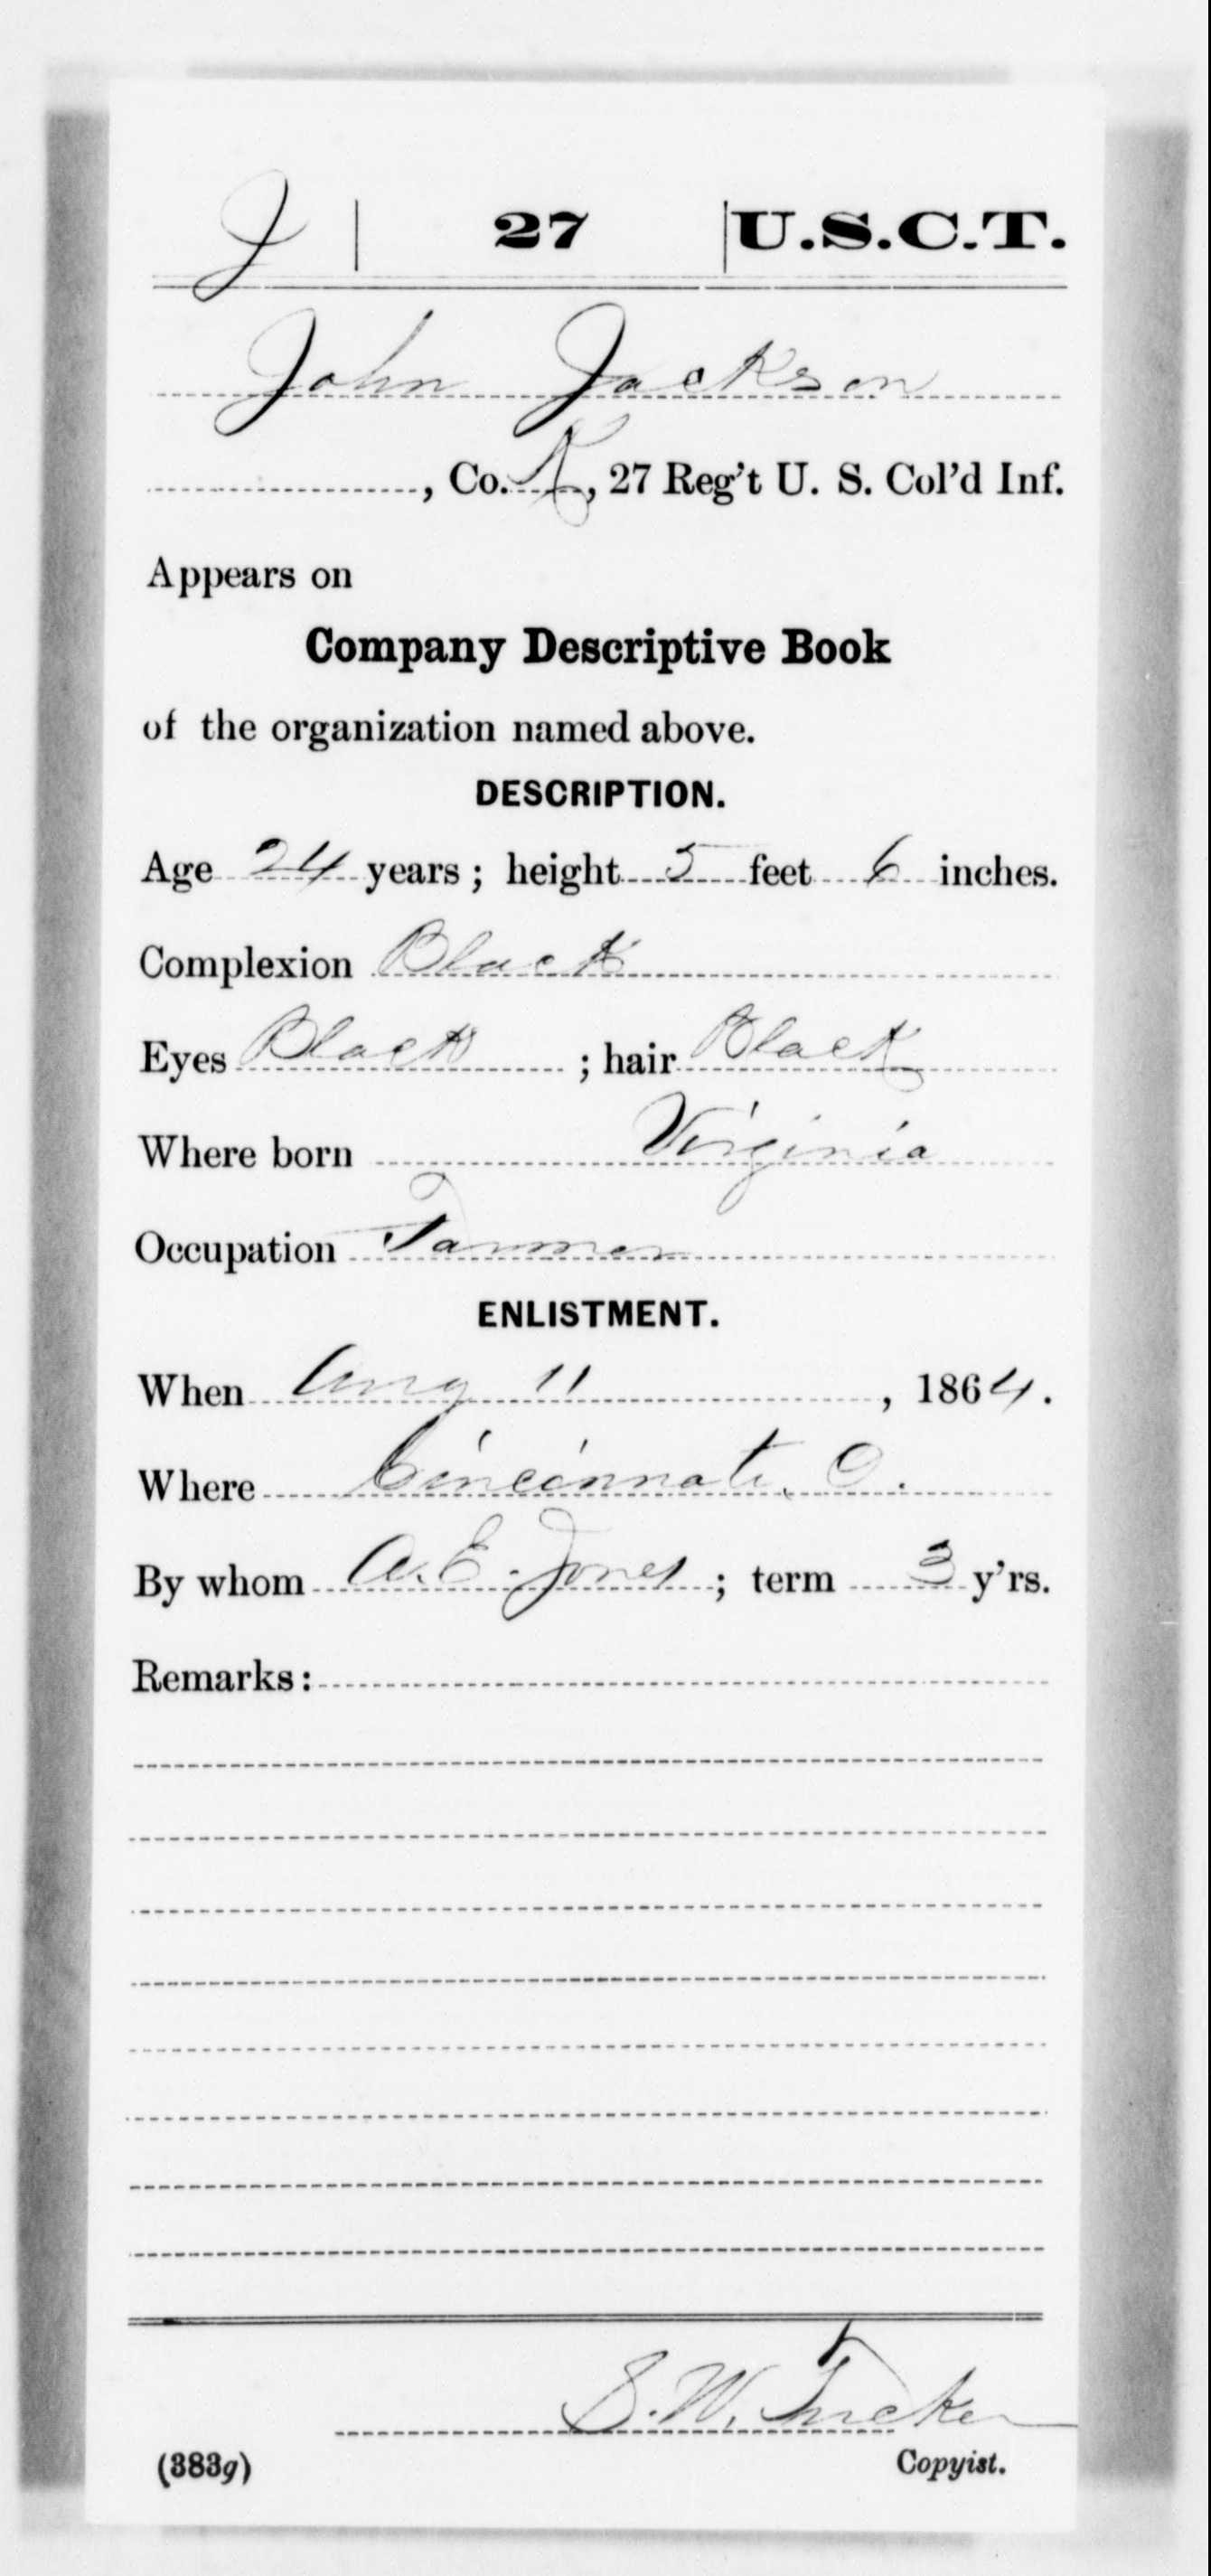 J | 27 | U.S.C.T.
John Jackson
, Co. K, 27 Reg't U. S. Col'd Inf.
Appears on
Company Descriptive Book
of the organization named above.
DESCRIPTION.
Age 24 years; height 5 feet 6 inches.
Complexion Black
Eyes Black ; hair Black
Where born Virginia
Occupation Farmer
ENLISTMENT.
When Aug 11, 1864.
Where Cincinnati, O.
By whom A. E. Jones; term 3 y'rs.
Remarks:
S. W. Tucker
(383g) Copyist.